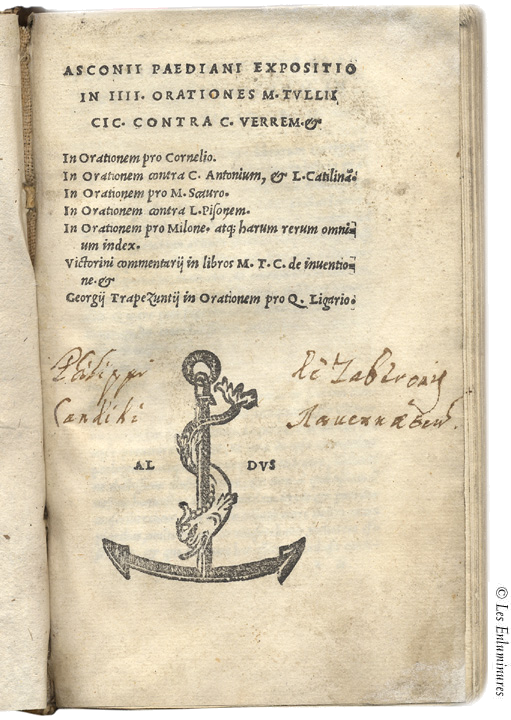 ASCONII PAEDIANI EXPOSITIO
IN IIII. ORATIONES M. TVLLII
CIC. CONTRA C. VERREM. &
In Orationem pro Cornelio.
In Orationem contra C. Antonium, & L. Catilinã.
In Orationem pro M. Scauro.
In Orationem contra L. Pisonem.
In Orationem pro Milone. atq; harum rerum omni-
um index.
Victorini commentarij in libros M. T. C. de inuentio-
ne. &
Georgij Trapezuntij in Orationem pro Q. Ligario.
Philippi
AL DVS
© Les Enluminures